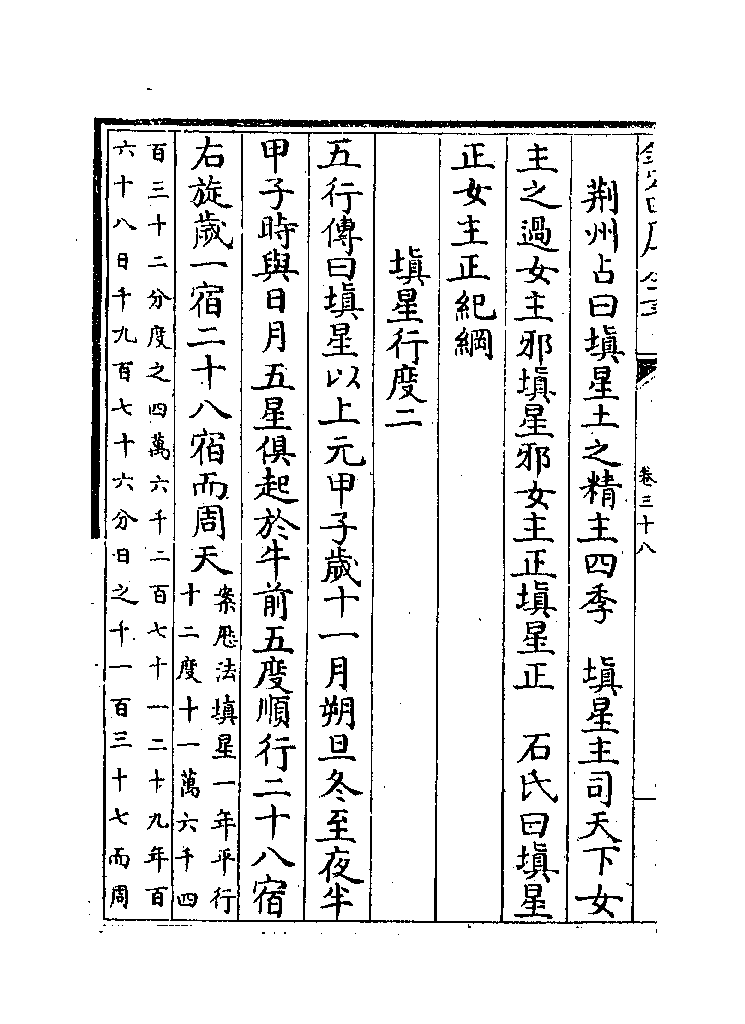 卷三十八
荆州占曰填星土之精主四季　填星主司天下女
主之過女主邪填星邪女主正填星正　石氏曰填星
正女主正紀綱
填星行度二
五行傳曰填星以上元甲子歲十一月朔旦冬至夜半
甲子時與日月五星俱起於牛前五度順行二十八宿
右旋歲一宿二十八宿而周天
案厯法填星一年平行
十二度十一萬六千四
百三十二分度之四萬六千二百七十一二十九年百
六十八日千九百七十六分日之千一百三十七而周